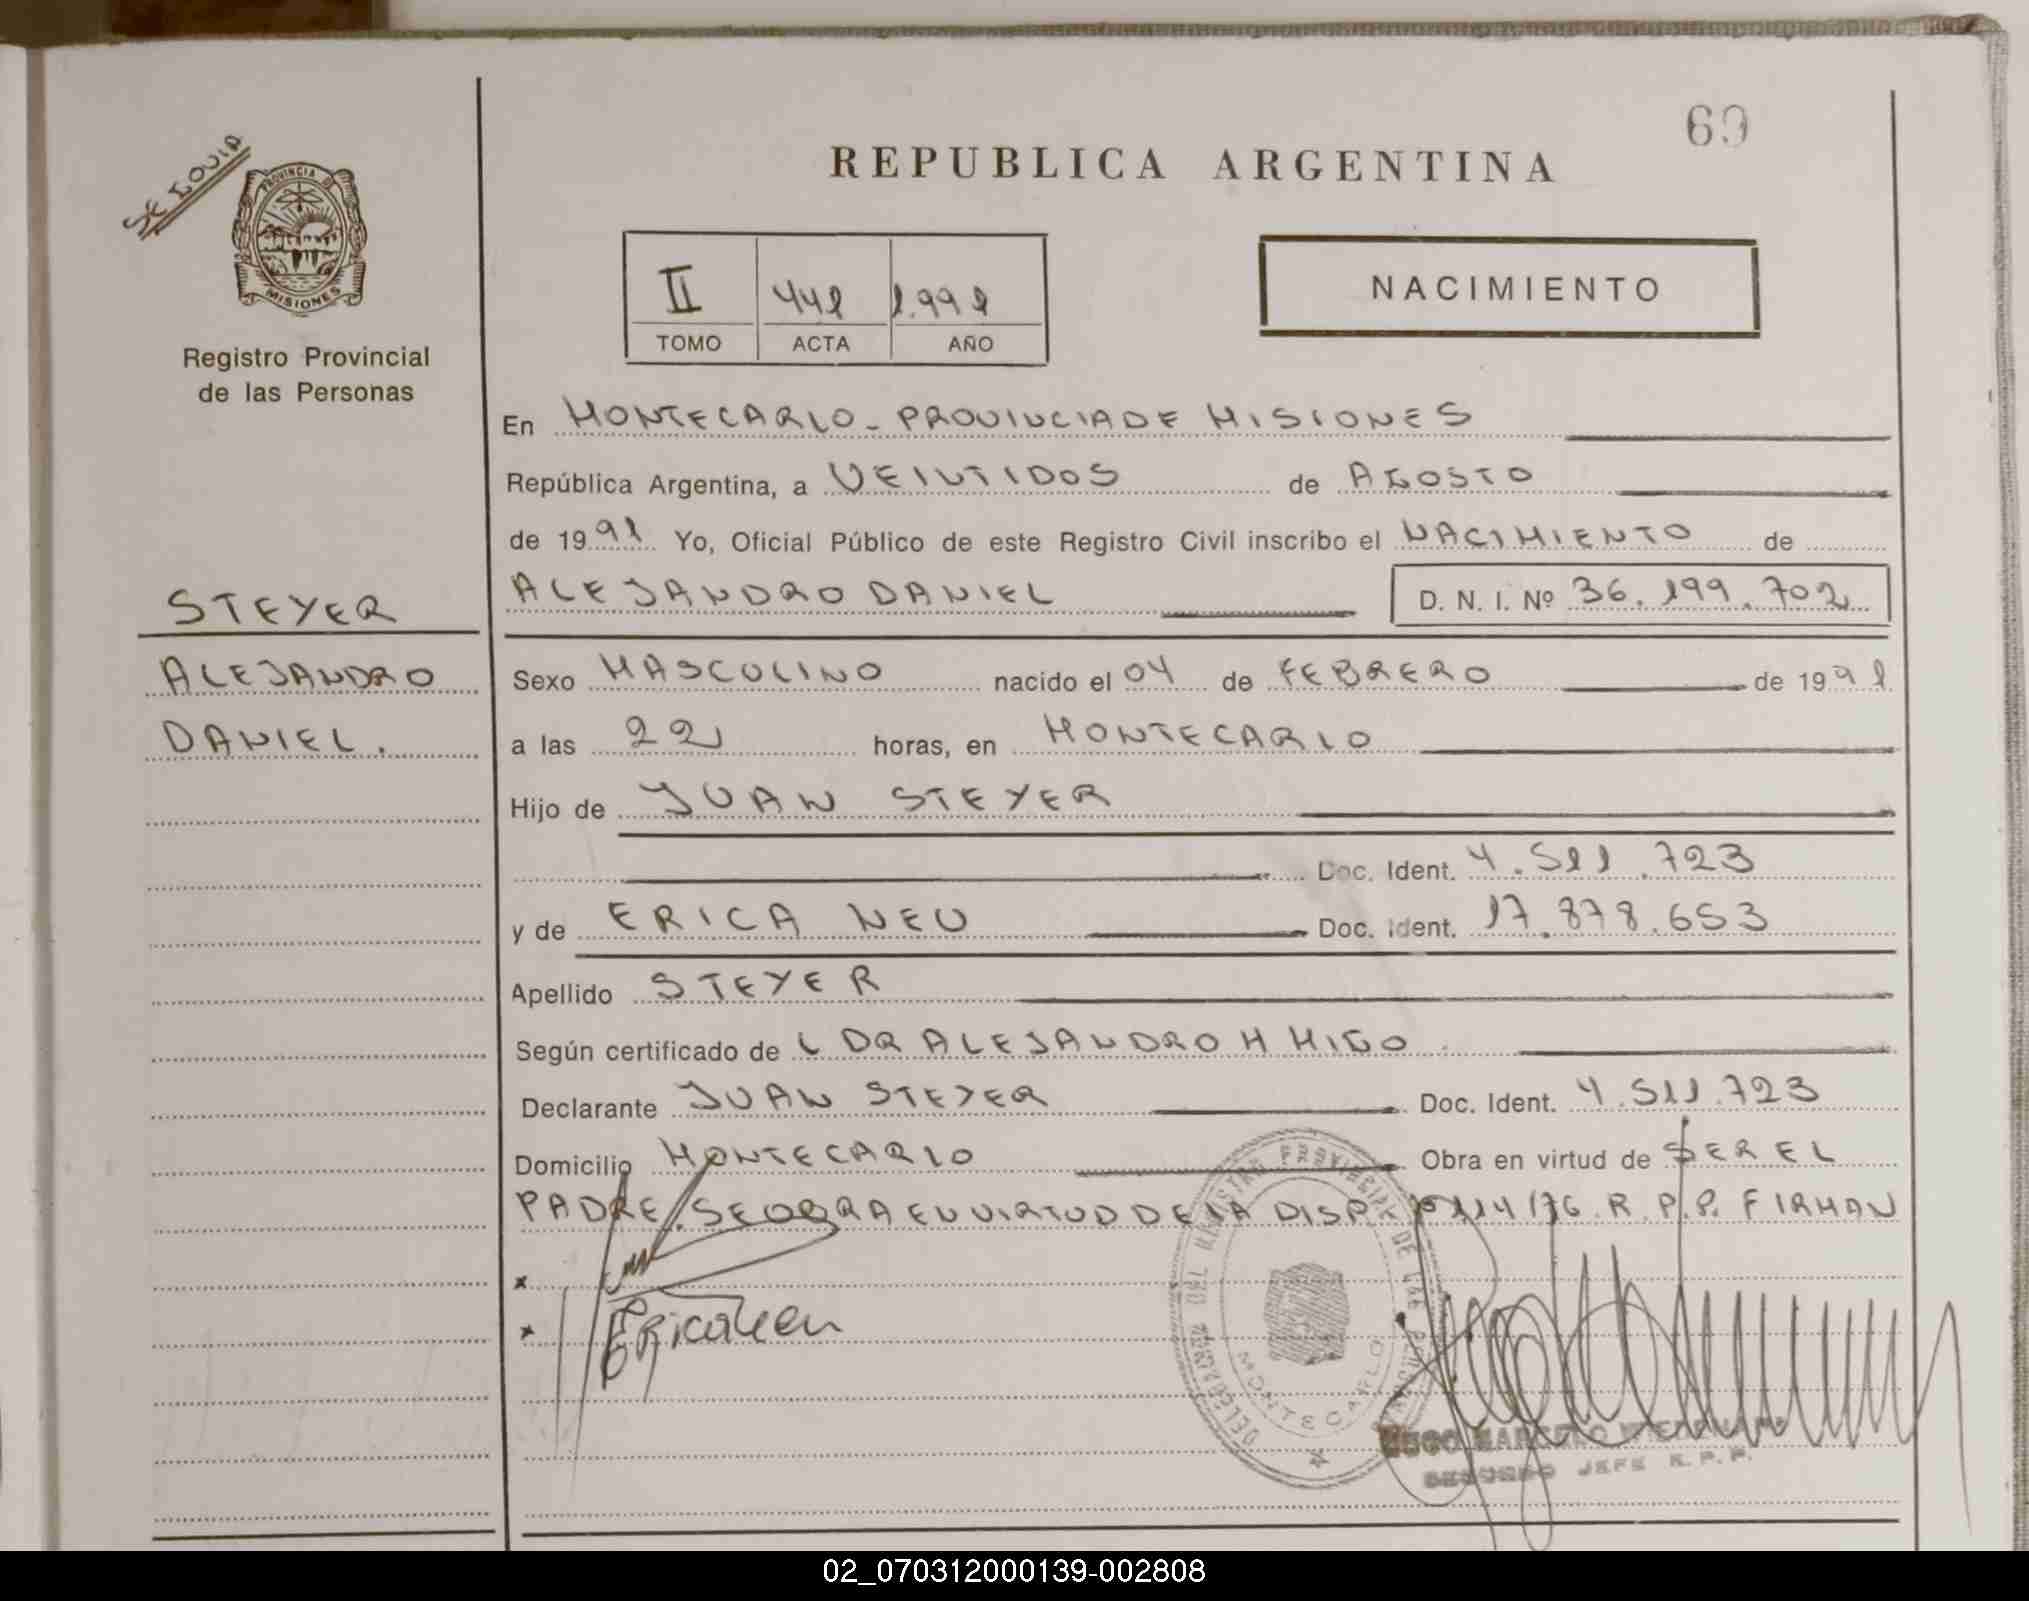 69
REPUBLICA ARGENTINA
PROVINCIA DE
MISIONES
Registro Provincial
de las Personas
II 441 1.991
TOMO ACTA AÑO
NACIMIENTO
En MONTECARLO - PROVINCIA DE MISIONES
República Argentina, a VEINTIDOS de AGOSTO
de 1991 Yo, Oficial Público de este Registro Civil inscribo el NACIMIENTO de
ALEJANDRO DANIEL D. N. I. Nº 36.199.702
STEYER
ALEJANDRO
DANIEL.
Sexo MASCULINO nacido el 04 de FEBRERO de 1991
a las 22 horas, en MONTECARLO
Hijo de JUAN STEYER
Doc. Ident. 4.511.723
y de ERICA NEU Doc. Ident. 17.878.653
Apellido STEYER
Según certificado de L DR ALEJANDRO H HIGO
Declarante JUAN STEYER Doc. Ident. 4.511.723
Domicilio MONTECARLO Obra en virtud de SER EL
PADRE. SE OBRA EN VIRTUD DE LA DISP. 114/76 R.P.P. FIRMAN
x
x Erica Neu
MONTECARLO
SEGUNDO JEFE R.P.P.
02_070312000139-002808